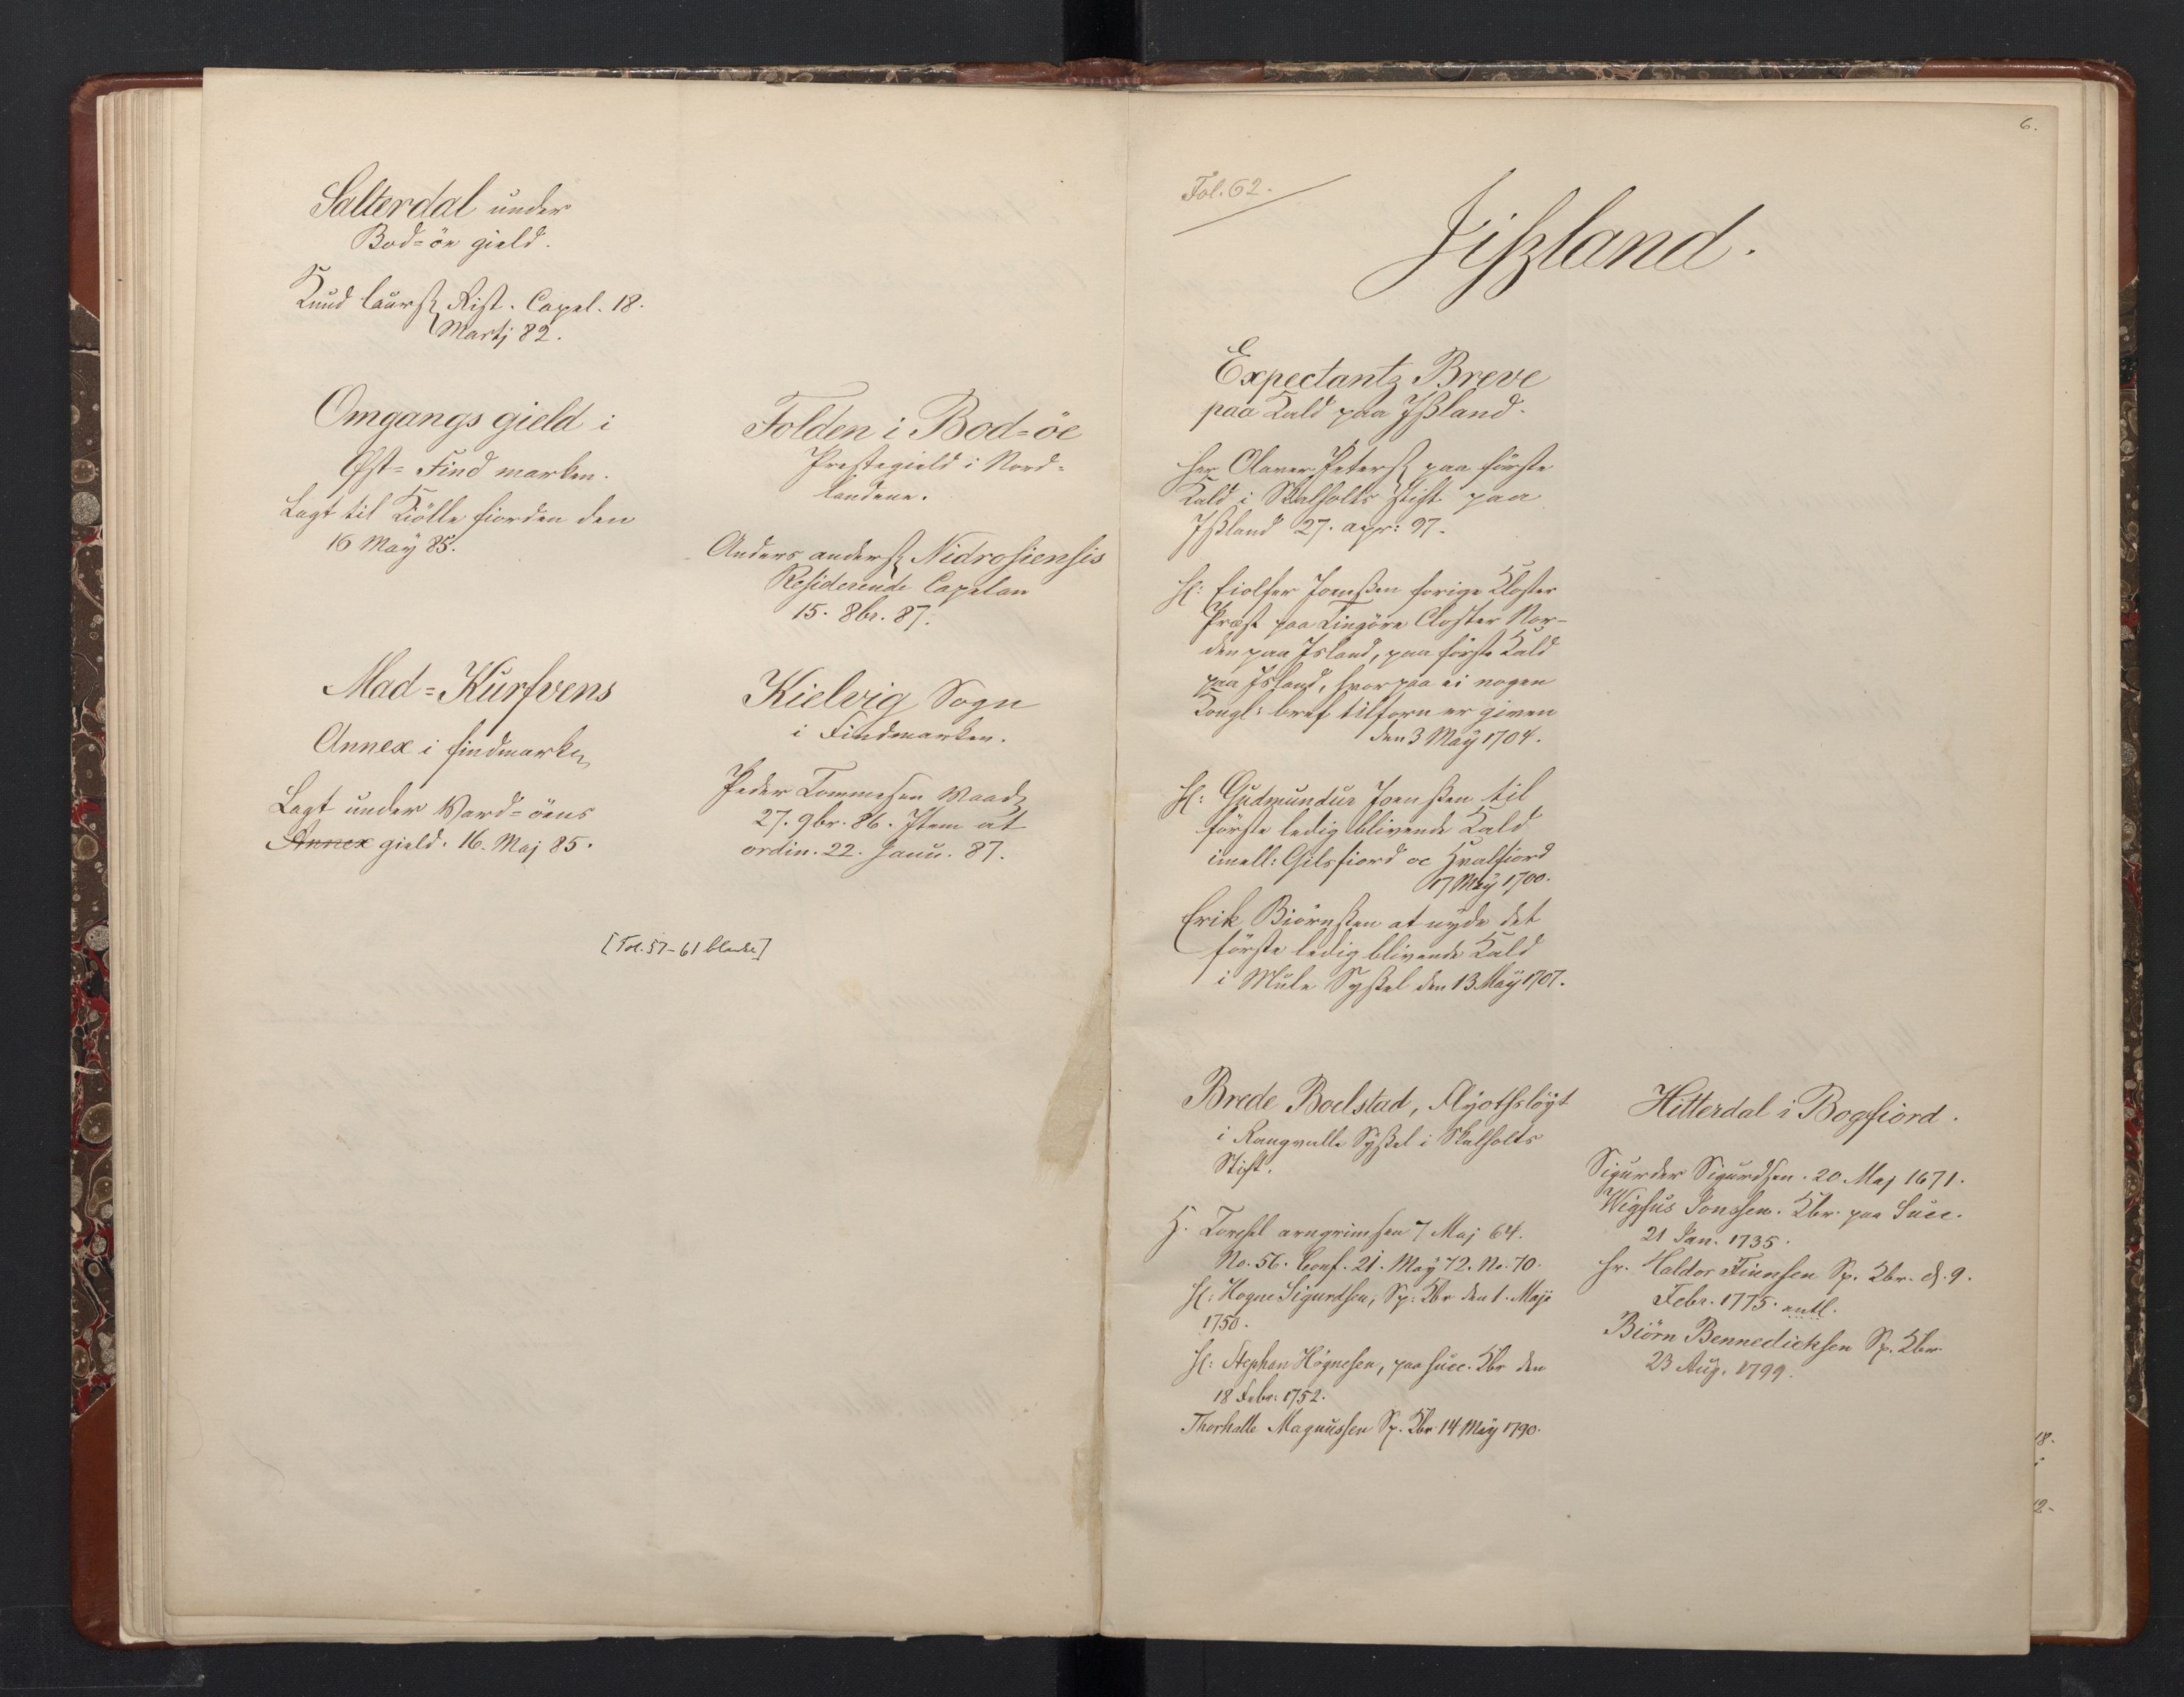 Salterdal under
Bod=öe gield.
Knud Laurss Rist. Capel. 18.
Martj 82.
Omgangs gield i
Øst=Find marken.
Lagt til Kiölle fiorden den
16 Maÿ 85.
Mad=Kurfvens
Annex i findmarken
Lagt under Ward=öens
Annex gield. 16. Maj 85.
Folden i Bod=öe
Prestegield i Nord=
landene.
Anders anderss Nidrosiensis
Residerende Capelan
15. 8br. 87.
Kielvig Sogn
i Findmarken.
Peder Tommesen
27. 9br. 86. Item at
ordin. 22. Janu. 87.
[Fol. 57-61 blanke]
6.
Fol. 62.
Jißland.
Expectantz Breve
paa Kald paa Ißland.
Her Olaver Peterss paa förste
Kald i Skalholts Stift paa
Ißland 27. apr: 97.
H: Eiolfer Jonßen forige Kloster
Præst paa Tingöre Closter Nor-
den paa Island, paa förste Kald
paa Island, hvorpaa ei nogen
Kongl: bref tilforn er given
den 3 Maÿ 1704.
H: Gudmundur Joenßen til
förste ledig blivende Kald
imell: Gilsfiord oc Hvalfiord
17 Maÿ 1700.
Erik Biörnßen at nyde det
förste ledig blivende Kald
i Mule Syßel den 13 Maÿ 1707.
Brede Boelstad, Flyothsløyt
i Rangvalle Syßel i Skalholts
Stift.
H. Torchel arngrimsen 7 Maj 64.
No. 56. Conf. 21. Maÿ 72. No. 70.
H: Hogne Sigurdsen, Sp: Kbr den 1. Maji
1750.
H: Stephan Høgnesen, paa Succ. Kbr den
18 Febr: 1752.
Thorhalle Magnussen Sp. Kbr 14 Maÿ 1790.
Hitterdal i Bogfiord.
Sigurder Sigurdsen. 20. Maj 1671.
Wigfus Jonssen. Kbr. paa Succ.
21 Jan. 1735.
Hr. Haldor Finnsen Sp. Kbr. d. 9.
Febr. 1775. entl.
Biörn Bennedichsen Sp. Kbr.
23 Aug. 1799.
18.
12-